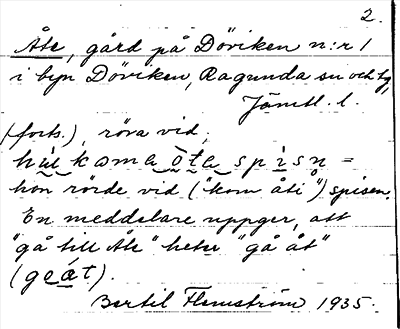 2.
Åte, gård på Döviken n:r 1
i byn Döviken, Ragunda sn och tg,
Jämtl. l.
(forts.), röra vid,
hu̇t koma ȯta spisn =
hon rörde vid ("kom åti") spisen.
En meddelare uppger, att
"gå till Åte" heter "gå åt"
(geȧt).
Bertil Flemström 1935.